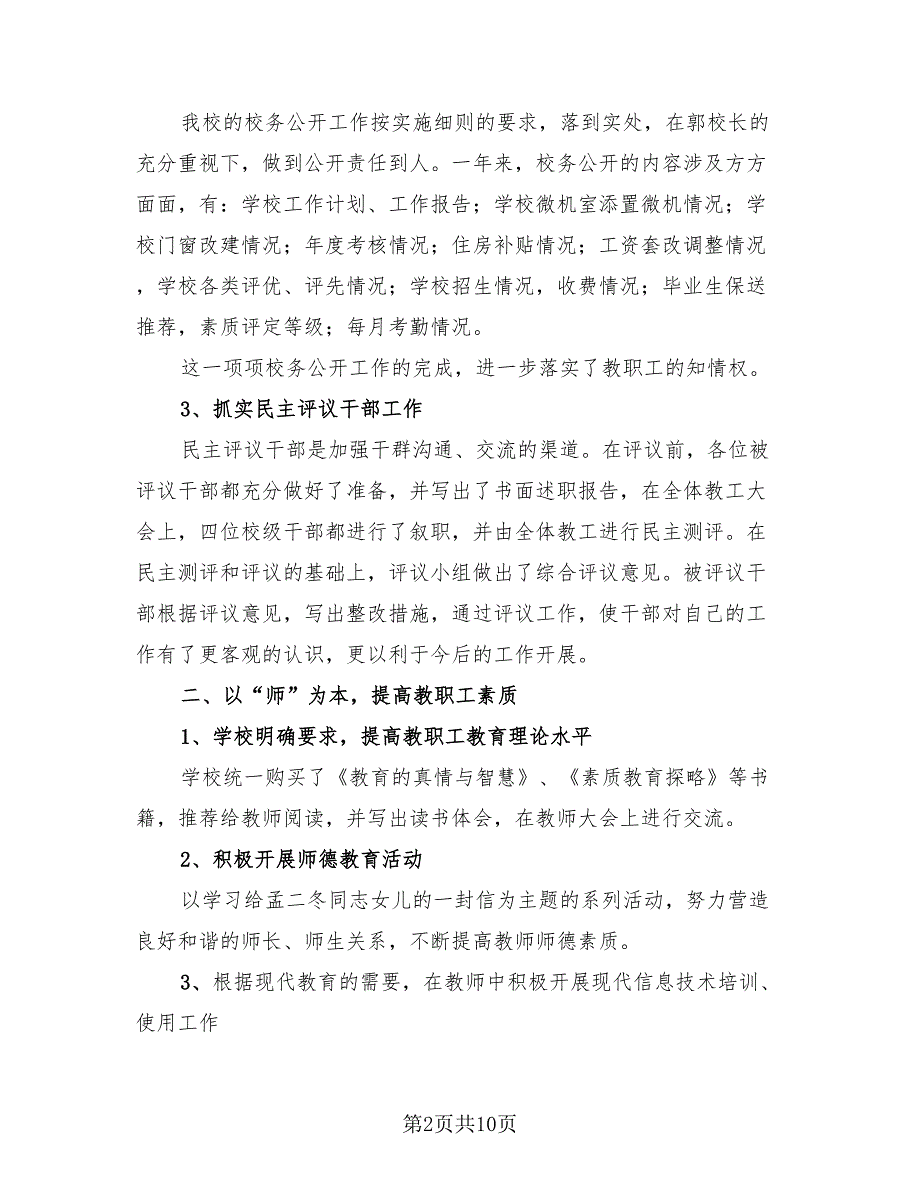 我校的校务公开工作按实施细则的要求，落到实处，在郭校长的
充分重视下，做到公开责任到人。一年来，校务公开的内容涉及方方
面面，有：学校工作计划、工作报告；学校微机室添置微机情况；学
校门窗改建情况；年度考核情况；住房补贴情况；工资套改调整情况
，学校各类评优、评先情况；学校招生情况，收费情况；毕业生保送
推荐，素质评定等级；每月考勤情况。
这一项项校务公开工作的完成，进一步落实了教职工的知情权。
3、抓实民主评议干部工作
民主评议干部是加强干群沟通、交流的渠道。在评议前，各位被
评议干部都充分做好了准备，并写出了书面述职报告，在全体教工大
会上，四位校级干部都进行了叙职，并由全体教工进行民主测评。在
民主测评和评议的基础上，评议小组做出了综合评议意见。被评议干
部根据评议意见，写出整改措施，通过评议工作，使干部对自己的工
作有了更客观的认识，更以利于今后的工作开展。
二、以“师”为本，提高教职工素质
1、学校明确要求，提高教职工教育理论水平
学校统一购买了《教育的真情与智慧》、《素质教育探略》等书
籍，推荐给教师阅读，并写出读书体会，在教师大会上进行交流。
2、积极开展师德教育活动
以学习给孟二冬同志女儿的一封信为主题的系列活动，努力营造
良好和谐的师长、师生关系，不断提高教师师德素质。
3、根据现代教育的需要，在教师中积极开展现代信息技术培训、
使用工作
第2页共10页